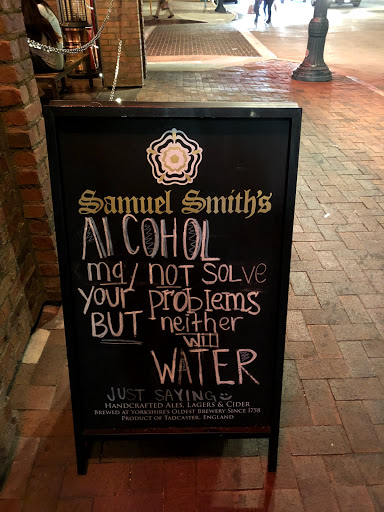 Samuel Smith's
ALCOHOL
may NOT SOLVE
your problems
BUT neither
WIll
WATER
JUST SAYING
HANDCRAFTED ALES, LAGERS & CIDER
BREWED AT YORKSHIRE'S OLDEST BREWERY SINCE 1758
PRODUCT OF TADCASTER, ENGLAND